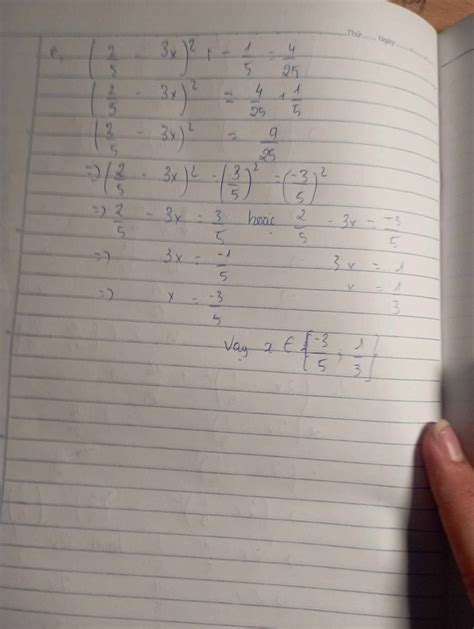 Thứ Ngày
e, (2/5 - 3x)² - 1/5 = 4/25
(2/5 - 3x)² = 4/25 + 1/5
(2/5 - 3x)² = 9/25
=> (2/5 - 3x)² = (3/5)² = (-3/5)²
=> 2/5 - 3x = 3/5 hoặc 2/5 - 3x = -3/5
=> 3x = -1/5 3x = 1
=> x = -3/5 x = 1/3
Vậy x ∈ {-3/5 ; 1/3}